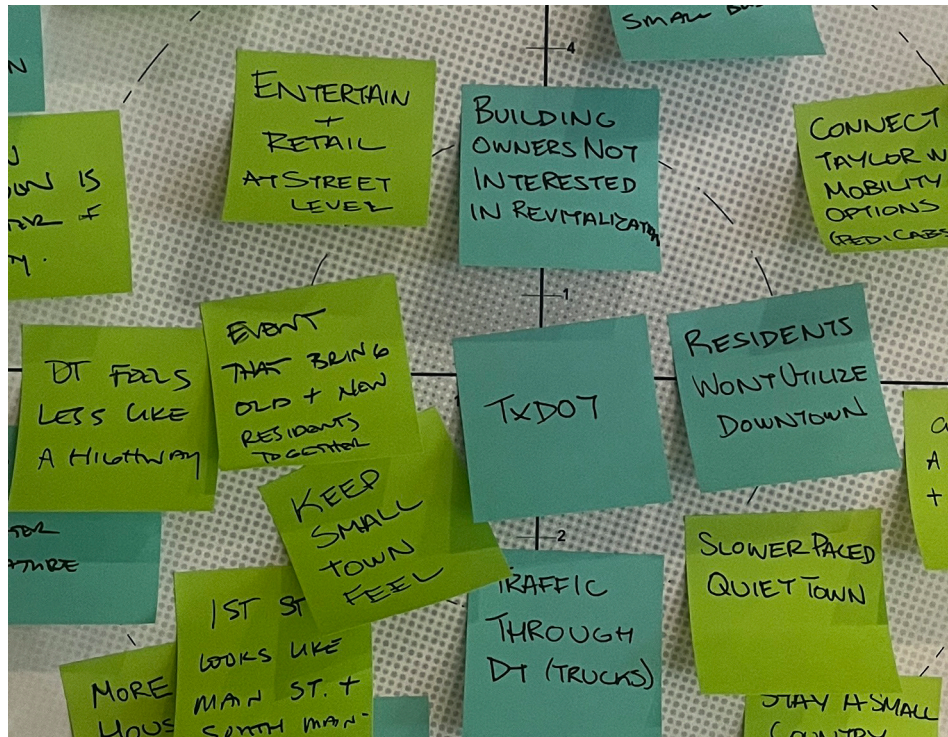 SMALL
N
4
ENTERTAIN
+
RETAIL
AT STREET
LEVEL
BUILDING
OWNERS NOT
INTERESTED
IN REVITALIZATION
CONNECT
TAYLOR W
MOBILITY
OPTIONS
(PEDICABS
IS
+
1
DT FEELS
LESS LIKE
A HIGHWAY
EVENT
THAT BRING
OLD + NEW
RESIDENTS
TOGETHER
TXDOT
RESIDENTS
WONT UTILIZE
DOWNTOWN
A
+
KEEP
SMALL
TOWN
FEEL
2
SLOWER PACED
QUIET TOWN
1ST ST
LOOKS LIKE
MAIN ST. +
SOUTH MAIN-
TRAFFIC
THROUGH
DT (TRUCKS)
MORE
HOUS
STAY A SMALL
COUNTRY